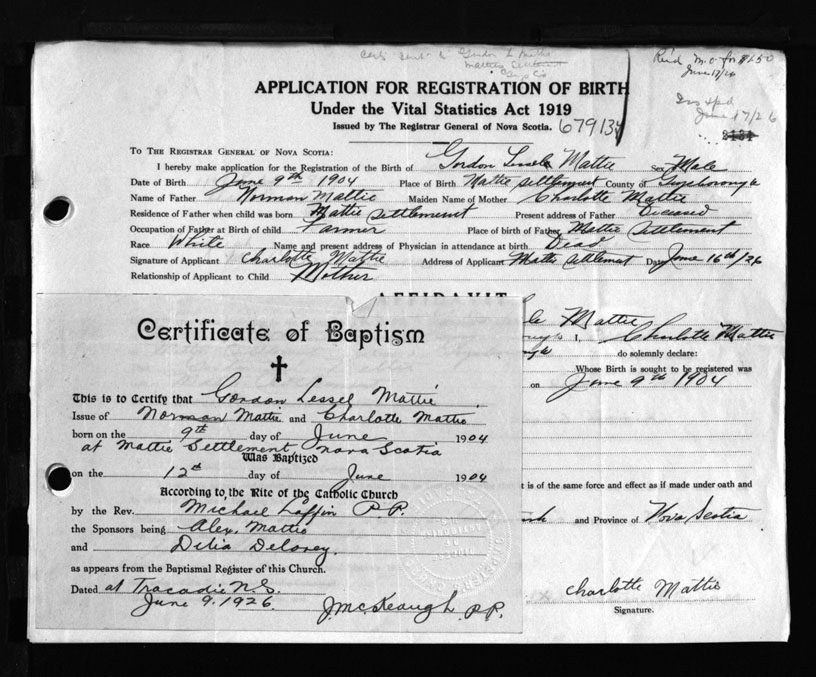 Certs sent to Gordon L Mattie
Mattie Settlement
Guys Co
Rec'd M.O. for $1.50
June 17/26
June 17/26
APPLICATION FOR REGISTRATION OF BIRTH
Under the Vital Statistics Act 1919
Issued by The Registrar General of Nova Scotia.
To The Registrar General of Nova Scotia:
I hereby make application for the Registration of the Birth of Gordon Lessel Mattie Sex Male
Date of Birth June 9th 1904 Place of Birth Mattie Settlement County of Guysborough
Name of Father Norman Mattie Maiden Name of Mother Charlotte Mattie
Residence of Father when child was born Mattie Settlement Present address of Father Diceased
Occupation of Father at Birth of child Farmer Place of birth of Father Mattie Settlement
Race White Name and present address of Physician in attendance at birth Dead
Signature of Applicant Charlotte Mattie Address of Applicant Mattie Settlement Date June 16th/26
Relationship of Applicant to Child Mother
AFFIDAVIT
Mattie
I, Charlotte Mattie
do solemnly declare:
Whose Birth is sought to be registered was
on June 9th 1904
is of the same force and effect as if made under oath and
and Province of Nova Scotia
Charlotte Mattie
Signature.
Certificate of Baptism
This is to Certify that Gordon Lessel Mattie
Issue of Norman Mattie and Charlotte Mattie
born on the 9th day of June 1904
at Mattie Settlement Nova Scotia
Was Baptized
on the 12th day of June 1904
According to the Rite of the Catholic Church
by the Rev. Michael Laffin P.P.
the Sponsors being Alex. Mattie
and Delia Delorey.
as appears from the Baptismal Register of this Church.
Dated at Tracadie N.S.
June 9. 1926. J. McKeough P.P.